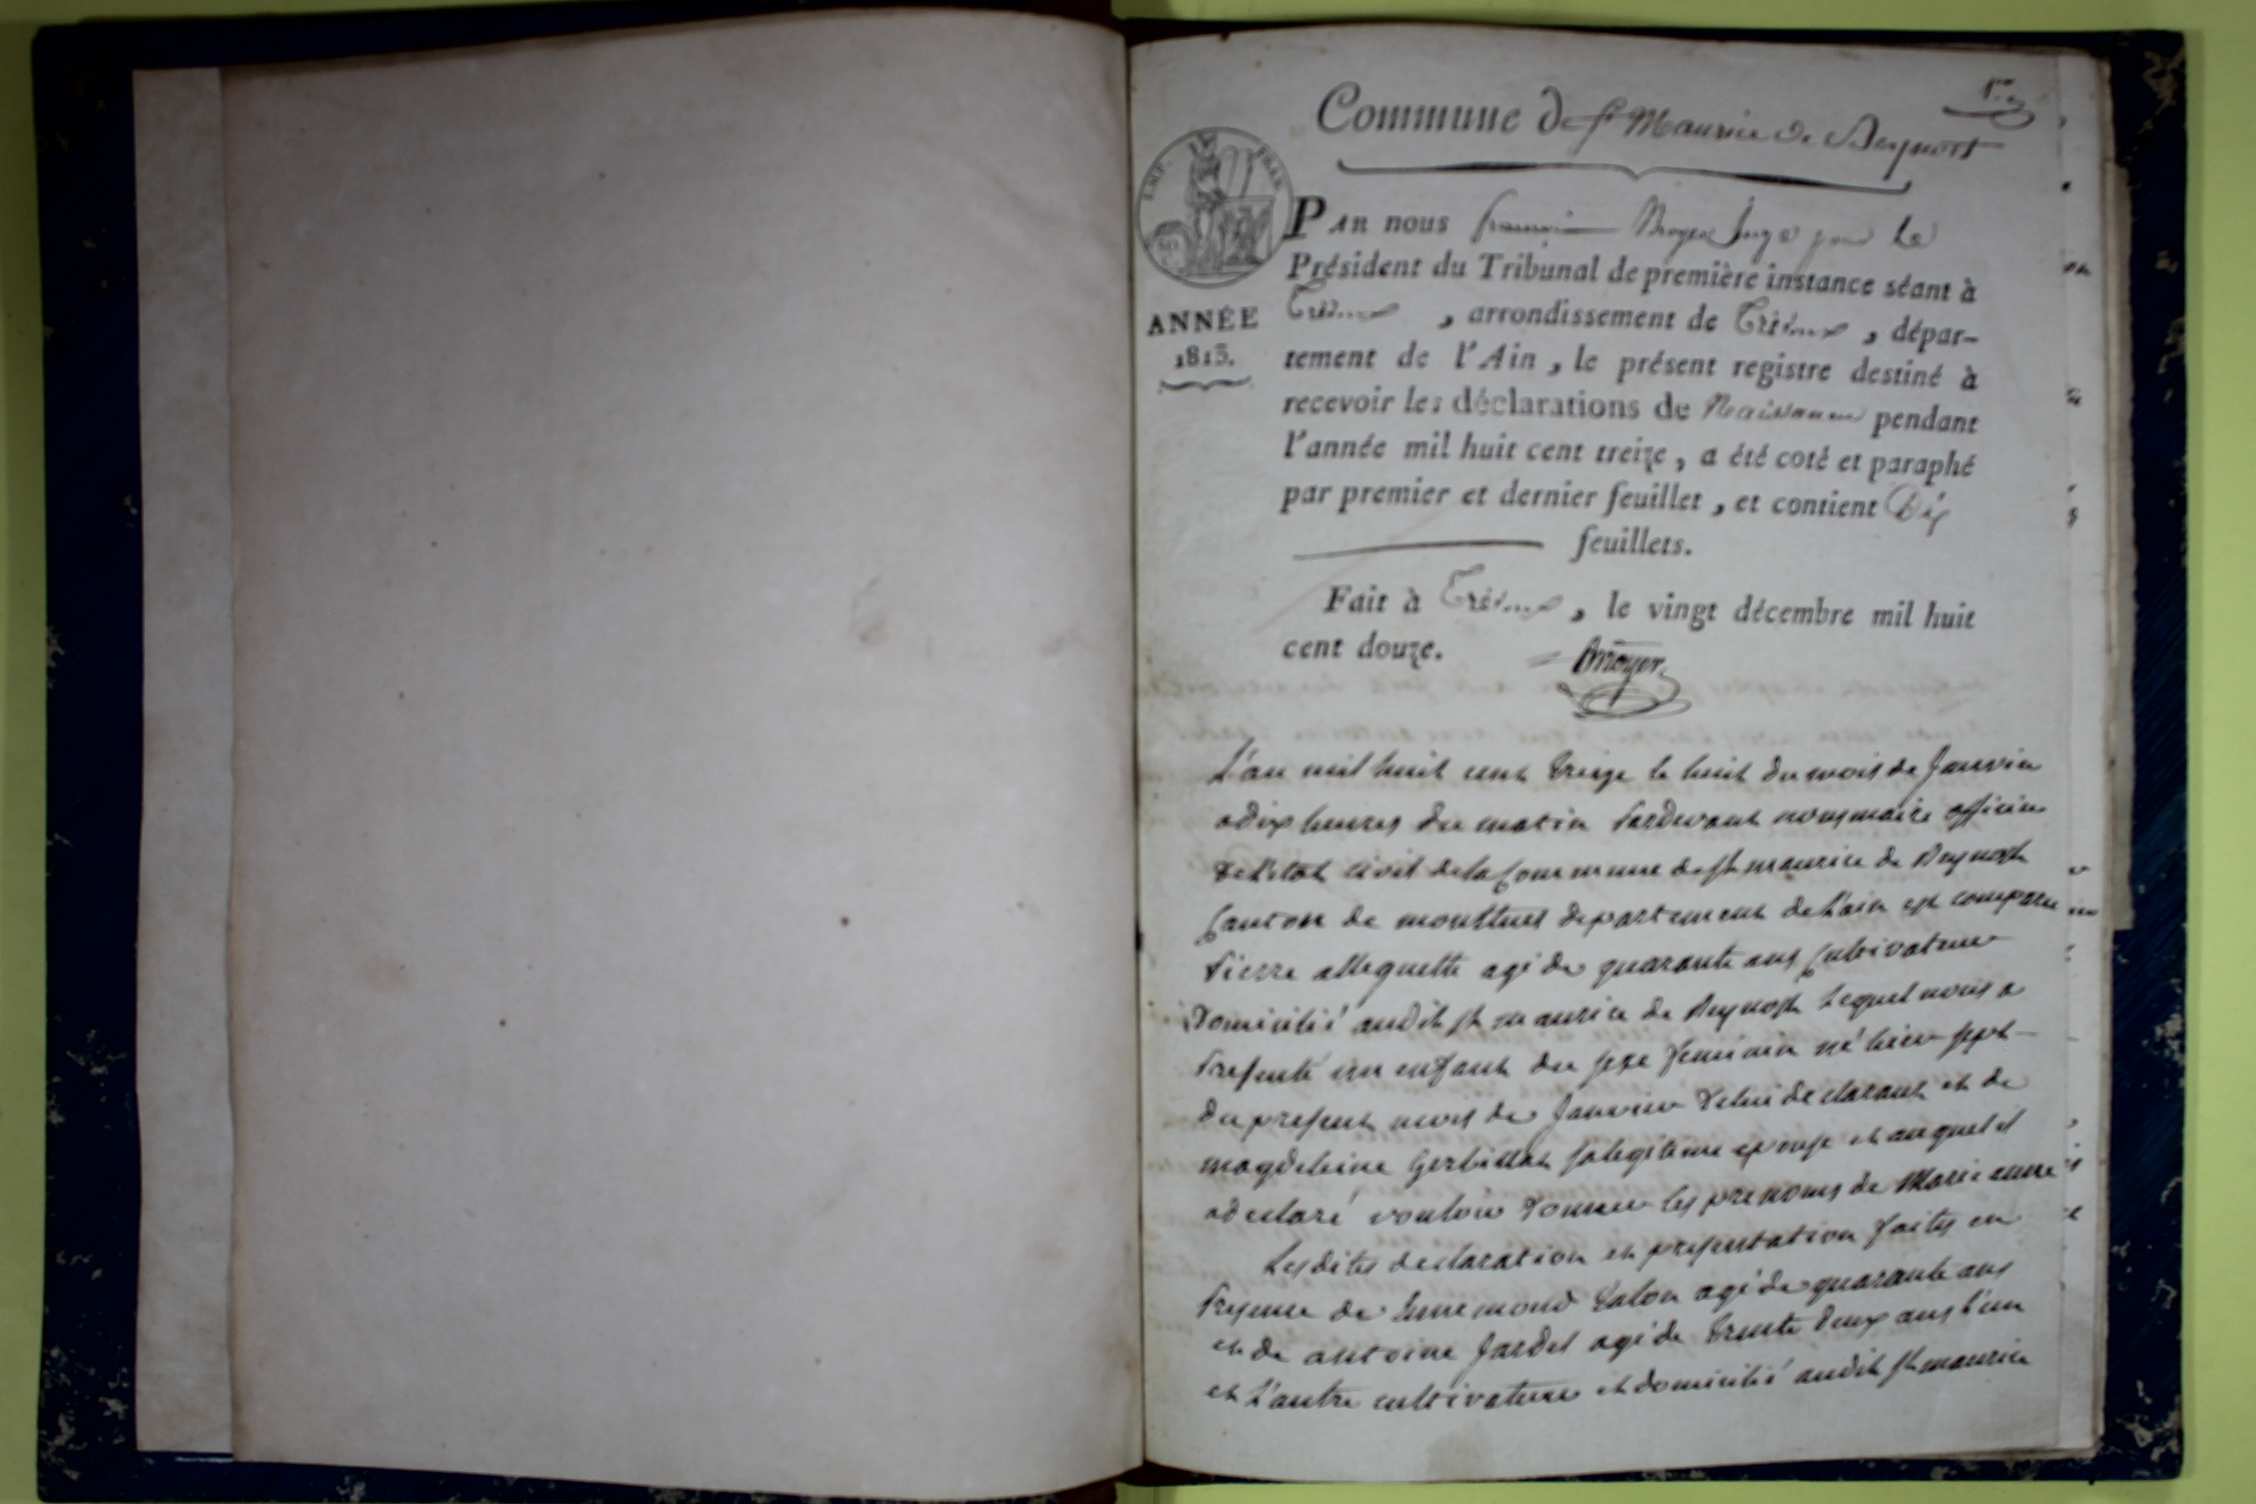 1.er
Commune de St Maurice de Beynost
IMP. FRAN.
50
ANNÉE
1813.
PAR nous françois Moyer Juge pour Le
Président du Tribunal de première instance séant à
Trévoux, arrondissement de Trévoux, dépar-
tement de l'Ain, le présent registre destiné à
recevoir les déclarations de Naissances pendant
l'année mil huit cent treize, a été coté et paraphé
par premier et dernier feuillet, et contient Dix
feuillets.
Fait à Trévoux, le vingt décembre mil huit
cent douze.
L'an mil huit cent treize le huit du mois de Janvier
a dix heures du matin Pardevant nous maire officier
de l'état civil de la Commune de St maurice de Beynost
Canton de montluel departement de l'ain est comparu
Pierre alleguette agé de quarante ans Cultivateur
Domicilié audit St maurice de Beynost Lequel nous a
Presenté un enfant du sexe feminin né hier sept
du present mois de Janvier de lui declarant et de
magdeleine Gerbillat sa legitime epouse et auquel il
a declaré vouloir Donner les prenoms de Marie anne
Lesdites declaration et presentation faites en
Presence de Ennemond Talon agé de quarante ans
et de antoine Jardel agé de trente Deux ans l'un
et L'autre cultivateurs et domicilié audit St maurice